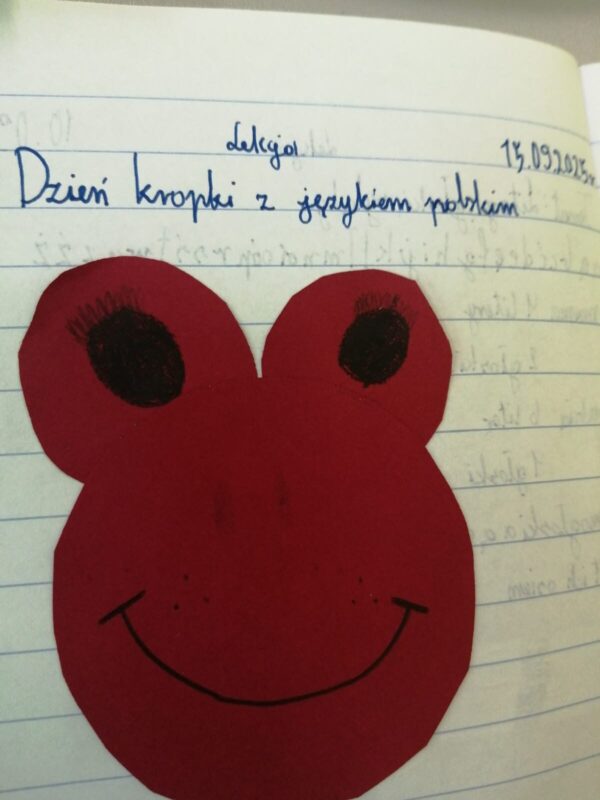 Lekcja 15.09.2025r.
Dzień kropki z językiem polskim